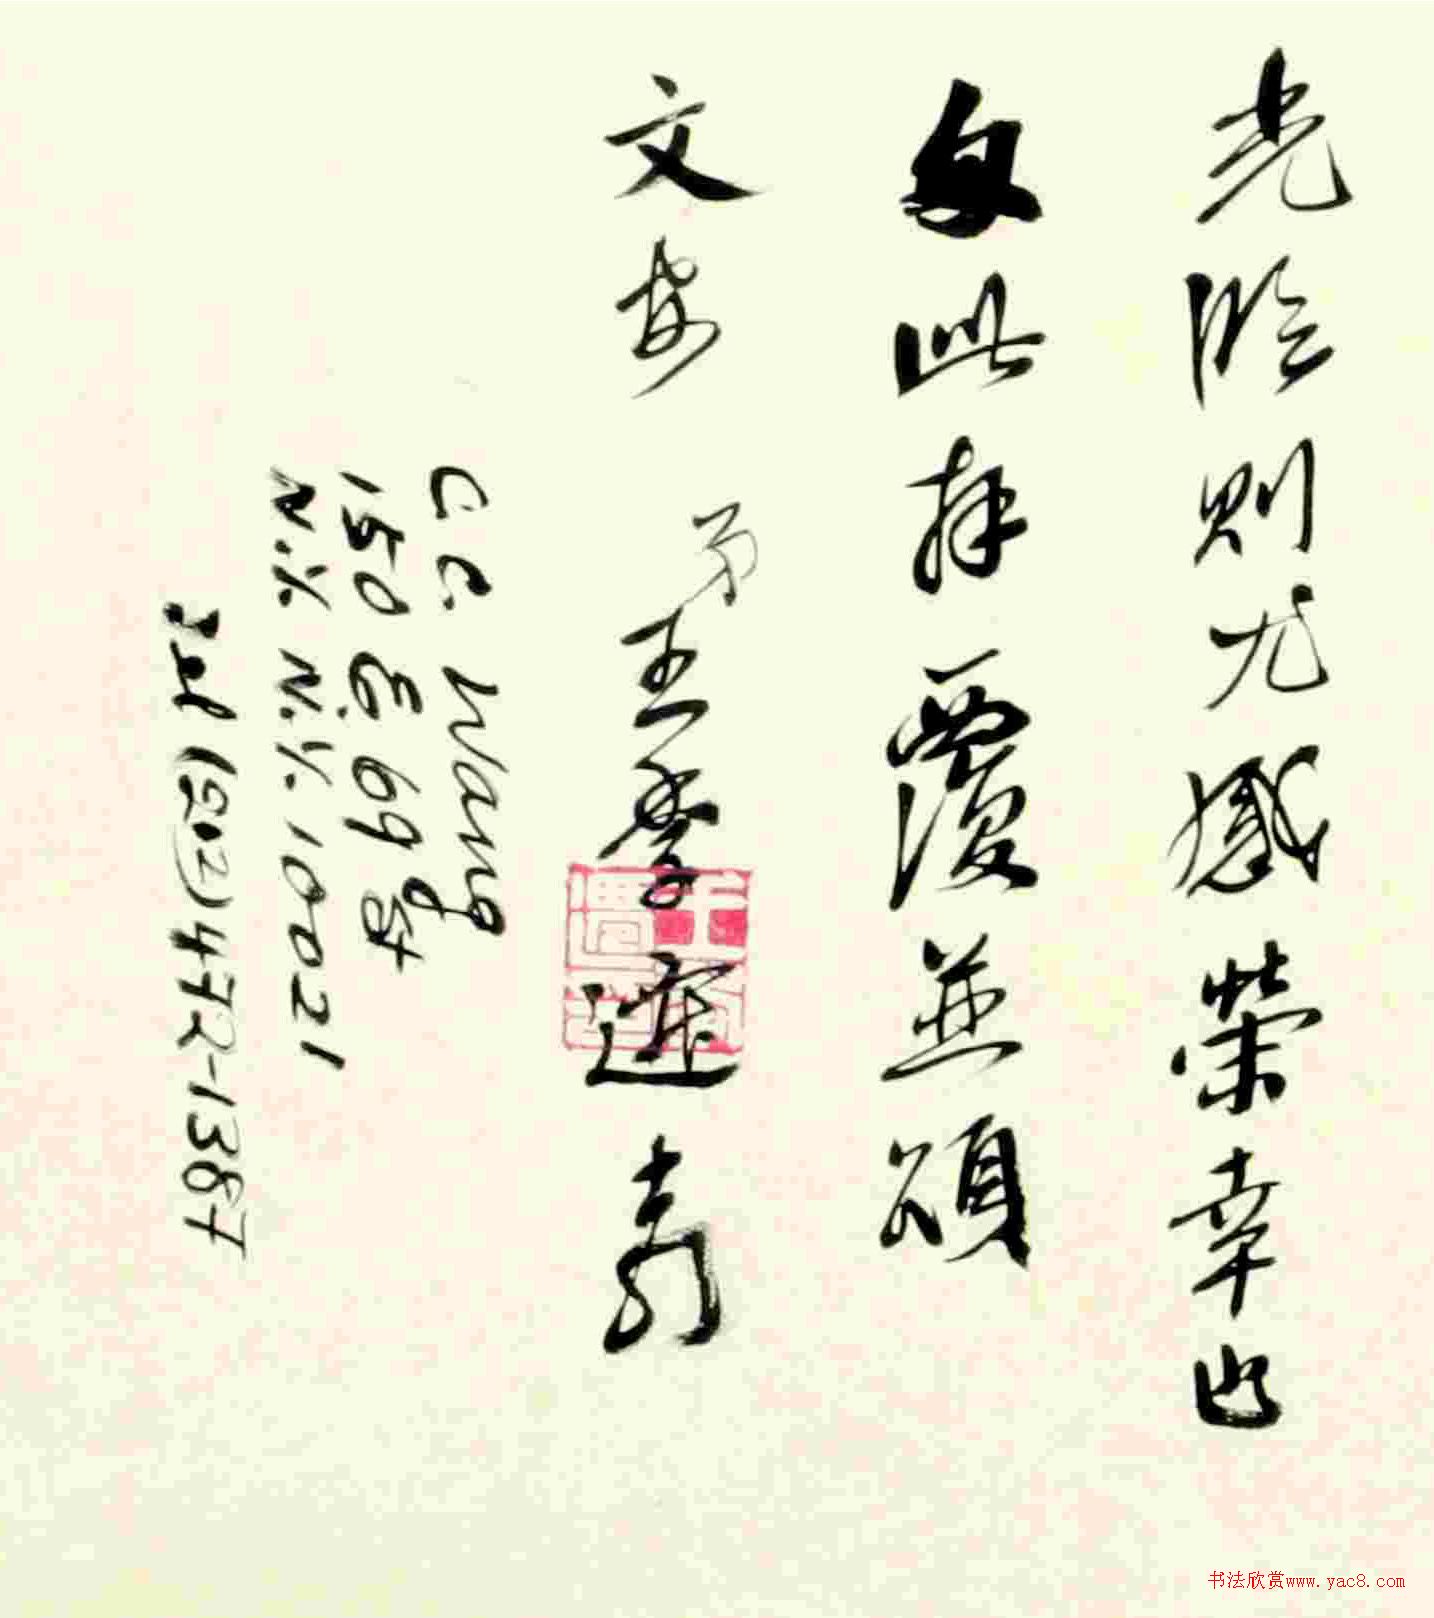 光臨則尤感榮幸也
匆此拜覆並頌
文安
弟王季遷頓首
C. C. Wang
150 E. 69 St
N.Y. N.Y. 10021
Tel (212) 472-1387
书法欣赏www.yac8.com